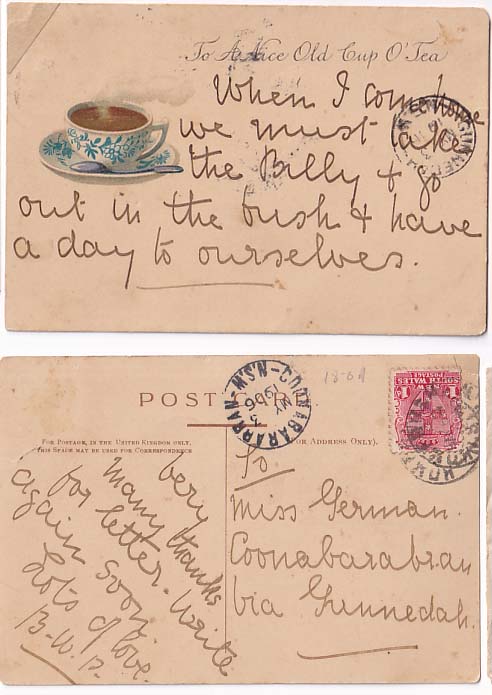 To A Nice Old Cup O' Tea
When I come home
we must take
the Billy & go
out in the bush & have
a day to ourselves.
POST CARD
18-01
COONABARABRAN N.S.W
1906
NEW SOUTH WALES
POSTAGE
FOR POSTAGE, IN THE UNITED KINGDOM ONLY,
THIS SPACE MAY BE USED FOR CORRESPONDENCE
(FOR ADDRESS ONLY).
very
many thanks
for letter. Write
again soon.
Lots of love.
B.W.B.
To
Miss German.
Coonabarabran
via Gunnedah.